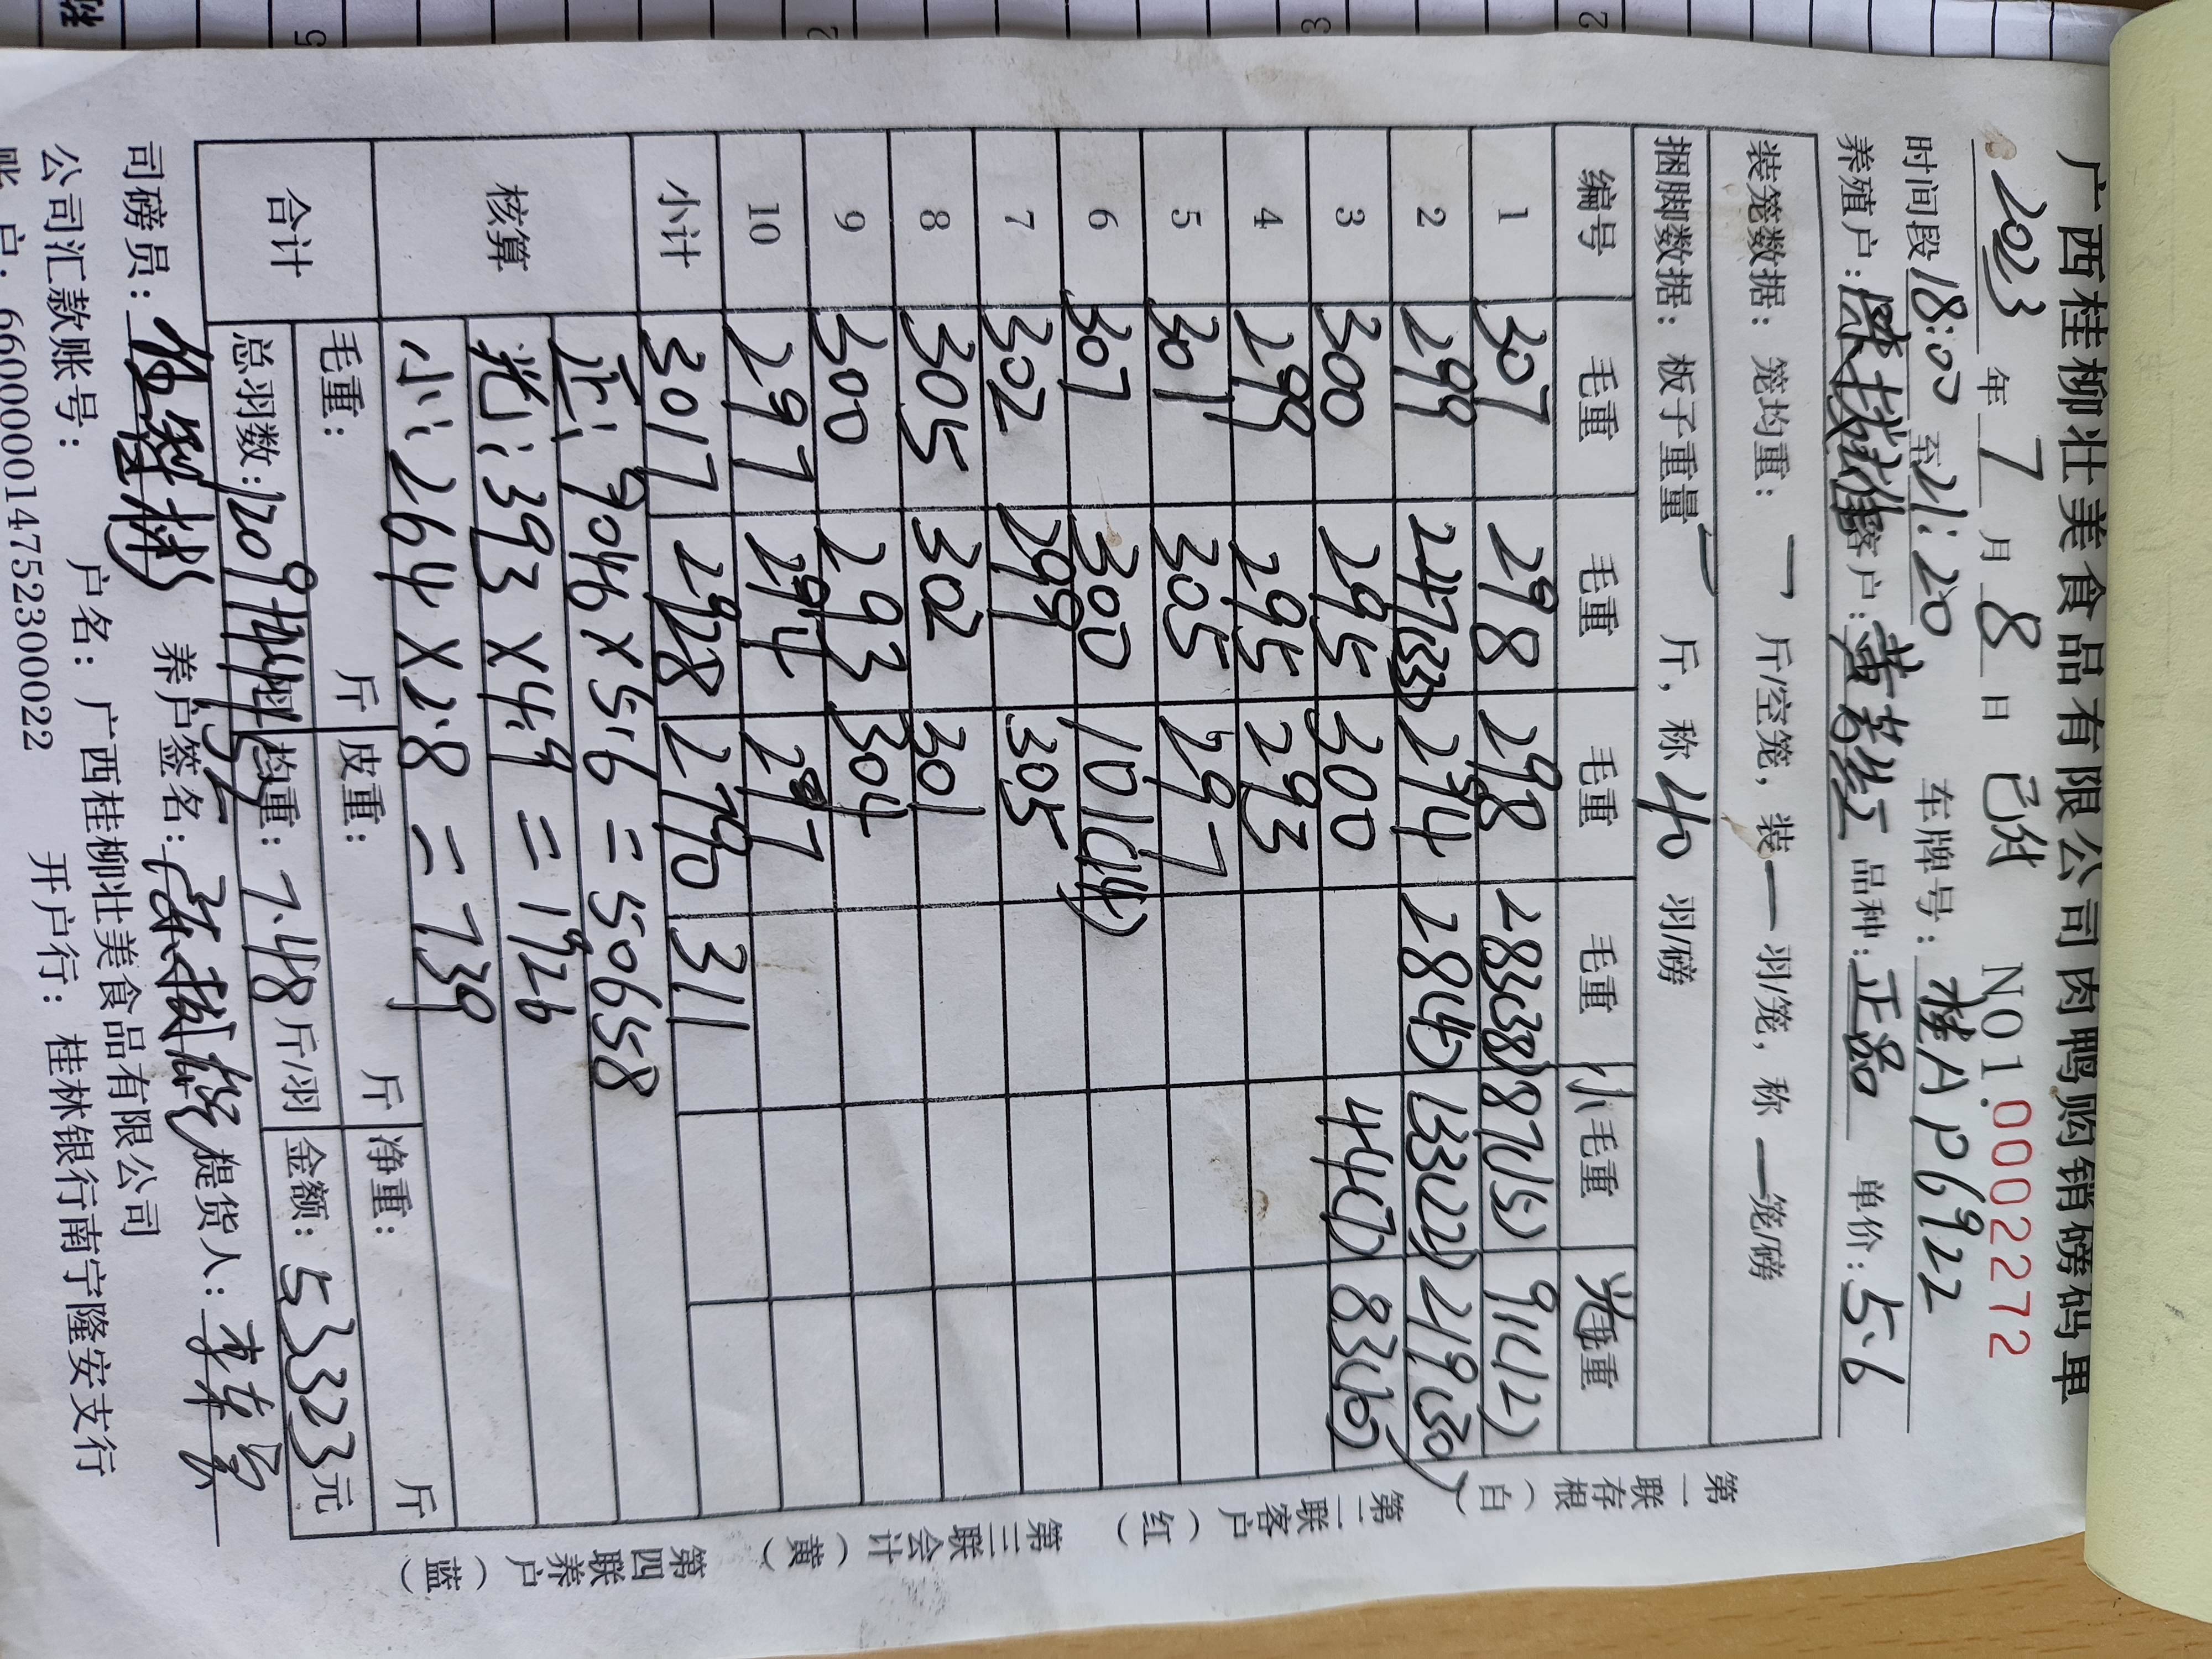 广西桂柳壮美食品有限公司肉鸭购销磅码单
2023 年 7 月 8 日 已付 NO1.0002272
时间段 18:00 至 21:20 车牌号: 桂A P6922
养殖户: 客户: 黄 品种: 正品 单价: 5.6
装笼数据: 笼均重: 一 斤/空笼, 装 一 羽/笼, 称 一 笼/磅
捆脚数据: 板子重量 一 斤, 称 40 羽/磅
编号 毛重 毛重 毛重 毛重 小毛重 光毛重
1 307 298 298 283(38) 87(15) 91(12)
2 299 247(33) 294 28(4) 133(22) 219(30)
3 300 295 300 44(7) 83(16)
4 299 295 293
5 301 305 297
6 307 300 101(14)
7 302 299 305
8 305 302 301
9 300 293 304
10 297 294 297
小计 3017 2928 2790 311
核算 正: 9046 × 5.6 = 50658
光: 393 × 4.9 = 1926
小: 264 × 2.8 = 739
合计 毛重: 斤 皮重: 斤 净重: 斤
总羽数: 均重: 7.48 斤/羽 金额: 53323 元
司磅员: 养户签名: 提货人: 李
公司汇款账号: 户名: 广西桂柳壮美食品有限公司
账 户: 660000001475230000022 开户行: 桂林银行南宁隆安支行
第一联存根(白) 第二联客户(红) 第三联会计(黄) 第四联养户(蓝)